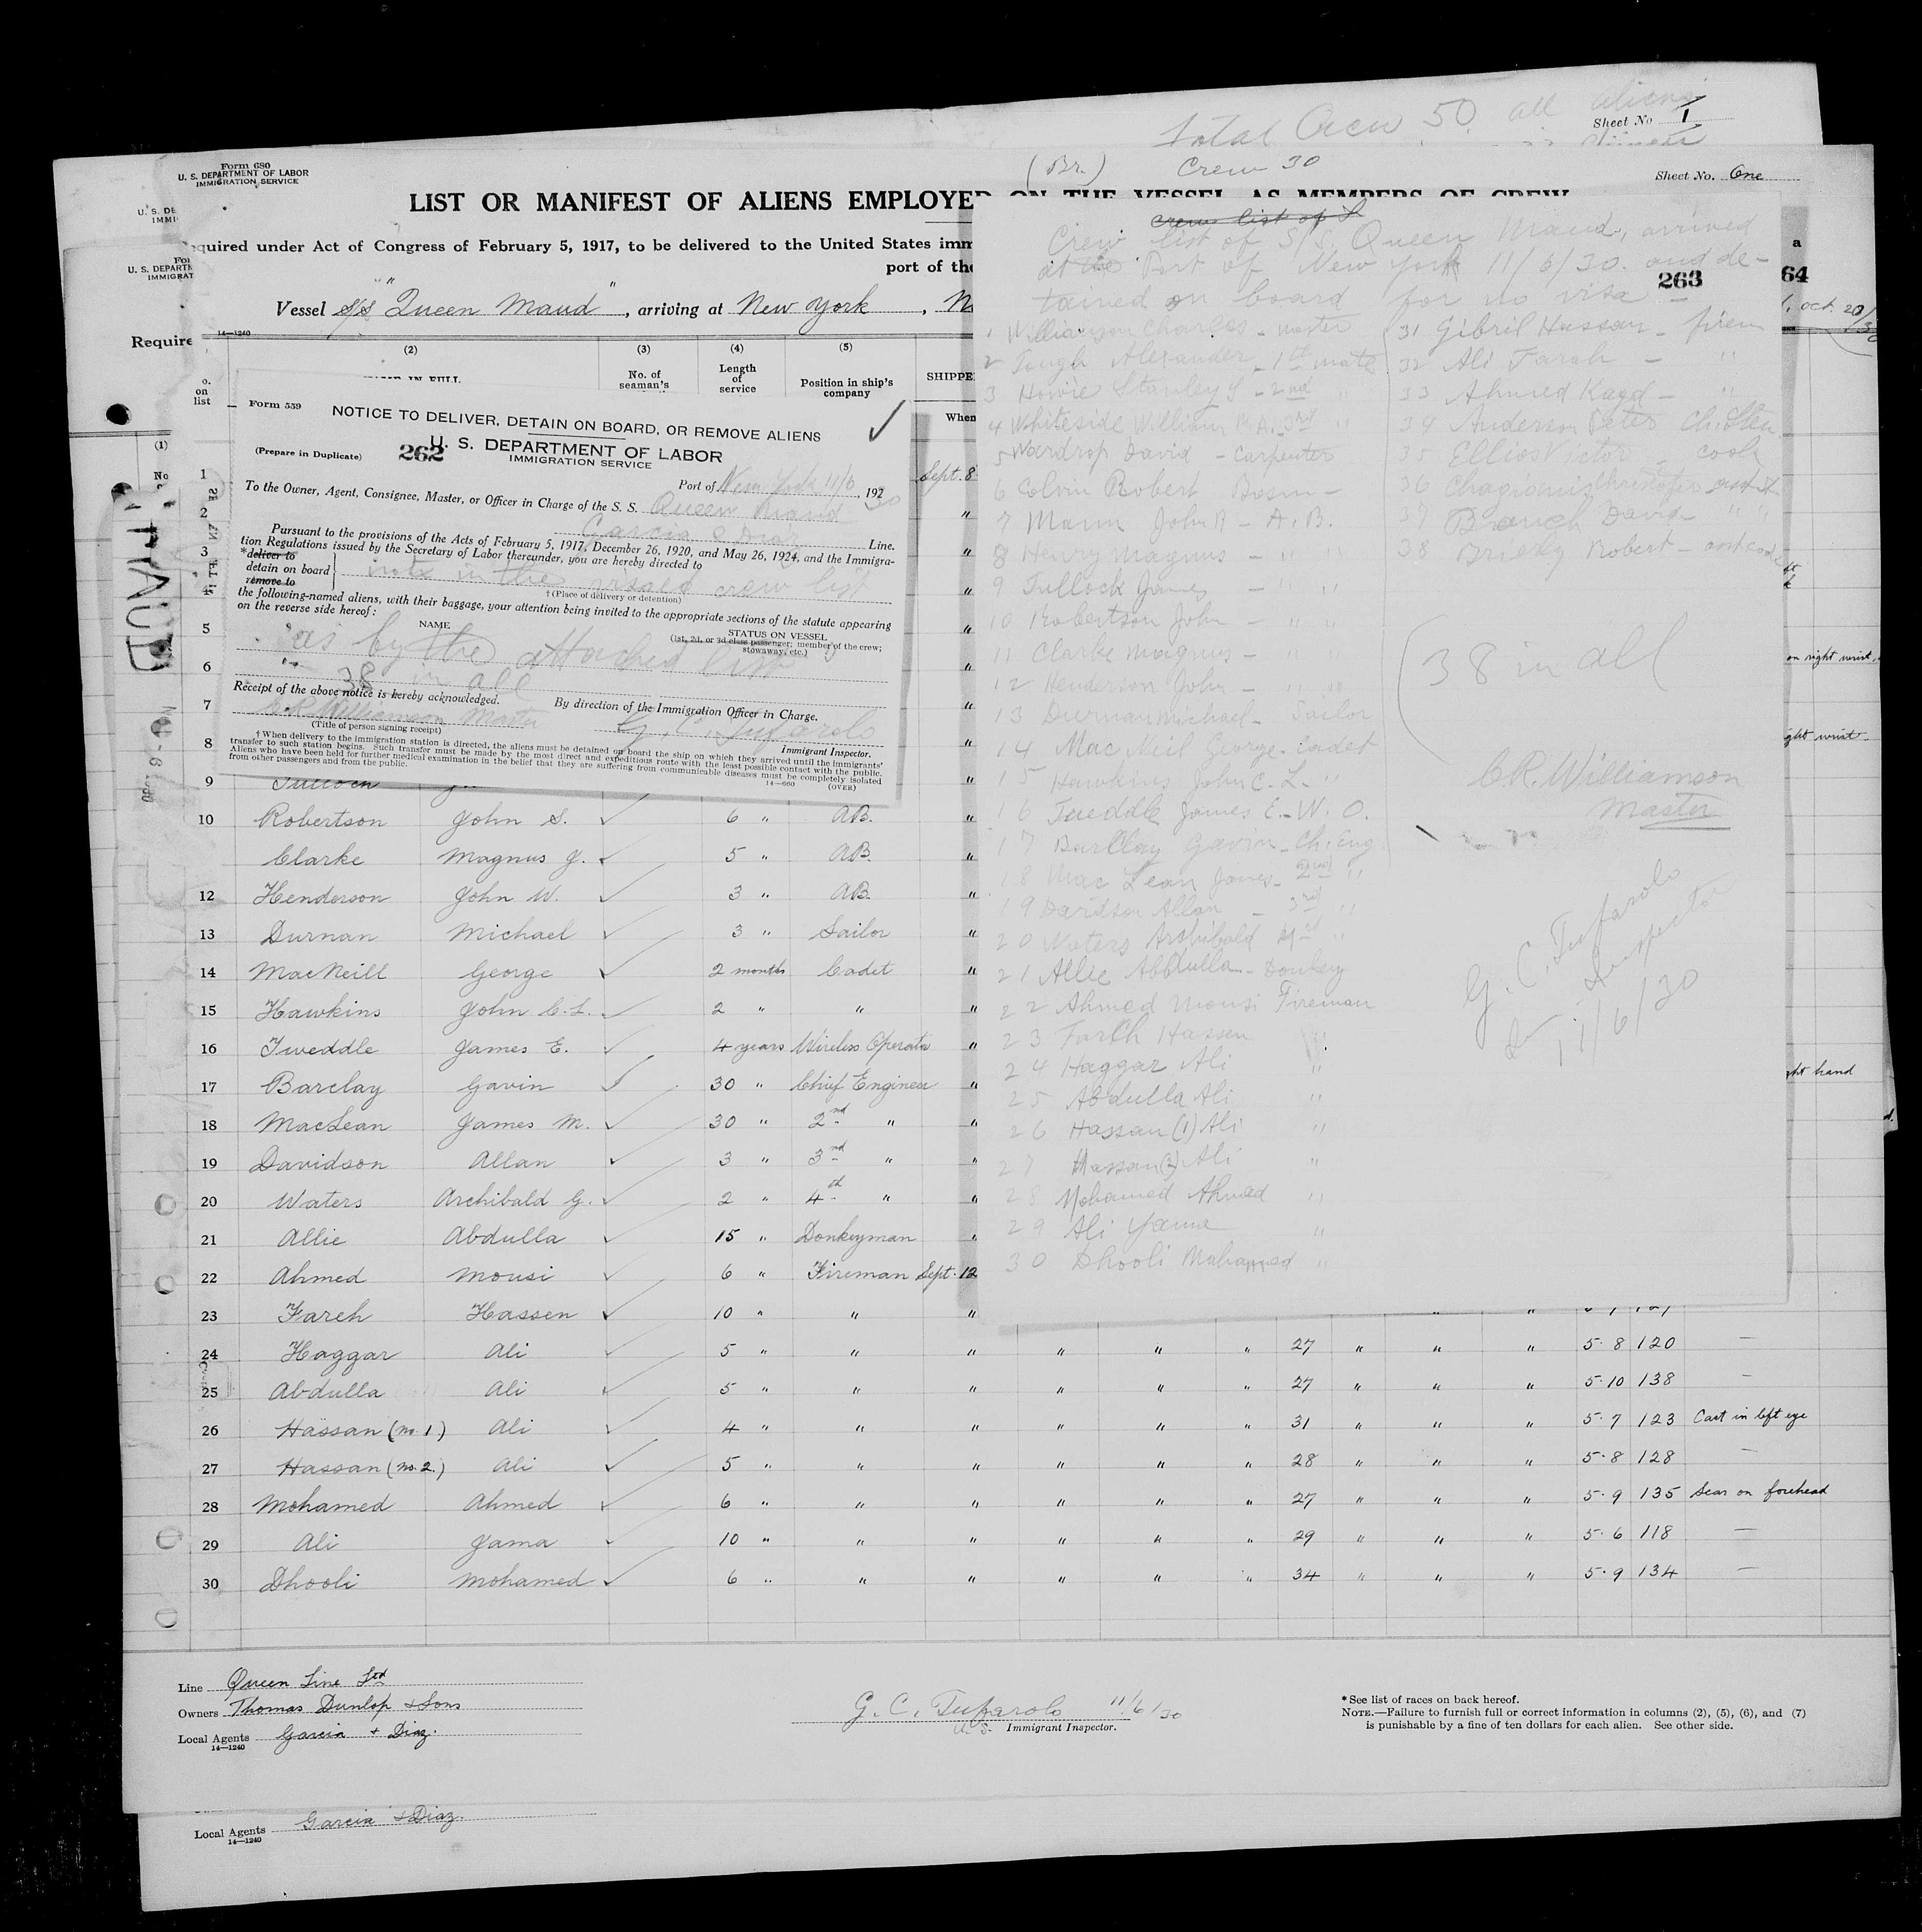 Total Crew 50. all aliens
Sheet No 1
(Br.) Crew 30
Form 680
U. S. DEPARTMENT OF LABOR
IMMIGRATION SERVICE
Sheet No. One
LIST OR MANIFEST OF ALIENS EMPLOYED ON THE VESSEL AS MEMBERS OF CREW
quired under Act of Congress of February 5, 1917, to be delivered to the United States imm
port of the
Vessel S/S "Queen Maud", arriving at New York,
14—1240
Require
(2) (3) (4) (5)
No. of seaman's
Length of service
Position in ship's company
SHIPPE
When
Form 559
NOTICE TO DELIVER, DETAIN ON BOARD, OR REMOVE ALIENS
(Prepare in Duplicate)
262
U. S. DEPARTMENT OF LABOR
IMMIGRATION SERVICE
Port of New York 11/6, 1930
To the Owner, Agent, Consignee, Master, or Officer in Charge of the S. S. Queen Maud
Garcia & Diaz Line.
Pursuant to the provisions of the Acts of February 5, 1917, December 26, 1920, and May 26, 1924, and the Immigra-
tion Regulations issued by the Secretary of Labor thereunder, you are hereby directed to
*deliver to
detain on board
remove to
not in the visaed crew list
†(Place of delivery or detention)
the following-named aliens, with their baggage, your attention being invited to the appropriate sections of the statute appearing
on the reverse side hereof:
NAME
STATUS ON VESSEL
(1st, 2d, or 3d class passenger; member of the crew;
stowaway, etc.)
as by the attached list
38 in all
Receipt of the above notice is hereby acknowledged.
By direction of the Immigration Officer in Charge.
C.R. Williamson Master
(Title of person signing receipt)
G. C. Tufarolo
Immigrant Inspector.
†When delivery to the immigration station is directed, the aliens must be detained on board the ship on which they arrived until the immigrants'
transfer to such station begins. Such transfer must be made by the most direct and expeditious route with the least possible contact with the public.
Aliens who have been held for further medical examination in the belief that they are suffering from communicable diseases must be completely isolated
from other passengers and from the public.
14—660 (OVER)
Crew list of S
Crew list of S/S. Queen Maud, arrived
at the Port of New York 11/6/30. and de-
tained on board for no visa
263
64
1 Williamson Charles - master
2 Tough Alexander - 1st mate
3 Howie Stanley S - 2nd "
4 Whiteside William A. - 3rd "
5 Wardrop David - Carpenter
6 Colvin Robert Bosn -
7 Mann John R - A. B.
8 Henry Magnus - " "
9 Tullock James - " "
10 Robertson John - " "
11 Clarke Magnus - " "
12 Henderson John - " "
13 Durnan Michael - Sailor
14 Mac Neil George - Cadet
15 Hawkins John C. L. "
16 Tueddle James E. - W. O.
17 Barclay Gavin - Ch. Eng.
18 Mac Lean James - 2nd "
19 Davidson Allan - 3rd "
20 Waters Archibald 4th "
21 Allie Abdulla - Donkey
22 Ahmed Mousi Fireman
23 Farch Hassen "
24 Haggar Ali "
25 Abdulla Ali "
26 Hassan (1) Ali "
27 Hassan (2) Ali "
28 Mohamed Ahmed "
29 Ali Yama "
30 Dhooli Mohamed "
31 Gibril Hassan - firem
32 Ali Farah - "
33 Ahmed Kayd - "
34 Anderson Peter Ch. Stew.
35 Ellios Victor - cook
36
37 David " "
38 Brierly Robert - asst cook
38 in all
C.R. Williamson
Master
G. C. Tufarolo
Inspector
11/6/30
10 Robertson John S. 6 " A.B. "
Clarke Magnus J. 5 " A.B. "
12 Henderson John W. 3 " A.B. "
13 Durnan Michael 3 " Sailor "
14 MacNeill George 2 months Cadet "
15 Hawkins John C. L. 2 " " "
16 Tweddle James E. 4 years Wireless Operator "
17 Barclay Gavin 30 " Chief Engineer "
18 MacLean James M. 30 " 2nd " "
19 Davidson Allan 3 " 3rd " "
20 Waters Archibald G. 2 " 4th " "
21 Allie Abdulla 15 " Donkeyman "
22 Ahmed Mousi 6 " Fireman Sept. 12
23 Farch Hassen 10 " " "
24 Haggar Ali 5 " " " " " " 27 " " " 5 . 8 120 —
25 Abdulla Ali 5 " " " " " " 27 " " " 5 . 10 138 —
26 Hassan (no. 1) Ali 4 " " " " " " 31 " " " 5 . 7 123 Cast in left eye
27 Hassan (no. 2) Ali 5 " " " " " " 28 " " " 5 . 8 128 —
28 Mohamed Ahmed 6 " " " " " " 27 " " " 5 . 9 135 Scar on forehead
29 Ali Yama 10 " " " " " " 29 " " " 5 . 6 118 —
30 Dhooli Mohamed 6 " " " " " " 34 " " " 5 . 9 134 —
Line Queen Line Ltd
Owners Thomas Dunlop & Sons
Local Agents Garcia & Diaz.
14—1240
G. C. Tufarolo 11/6/30
U. S. Immigrant Inspector.
*See list of races on back hereof.
NOTE.—Failure to furnish full or correct information in columns (2), (5), (6), and (7)
is punishable by a fine of ten dollars for each alien. See other side.
Local Agents Garcia & Diaz.
14—1240